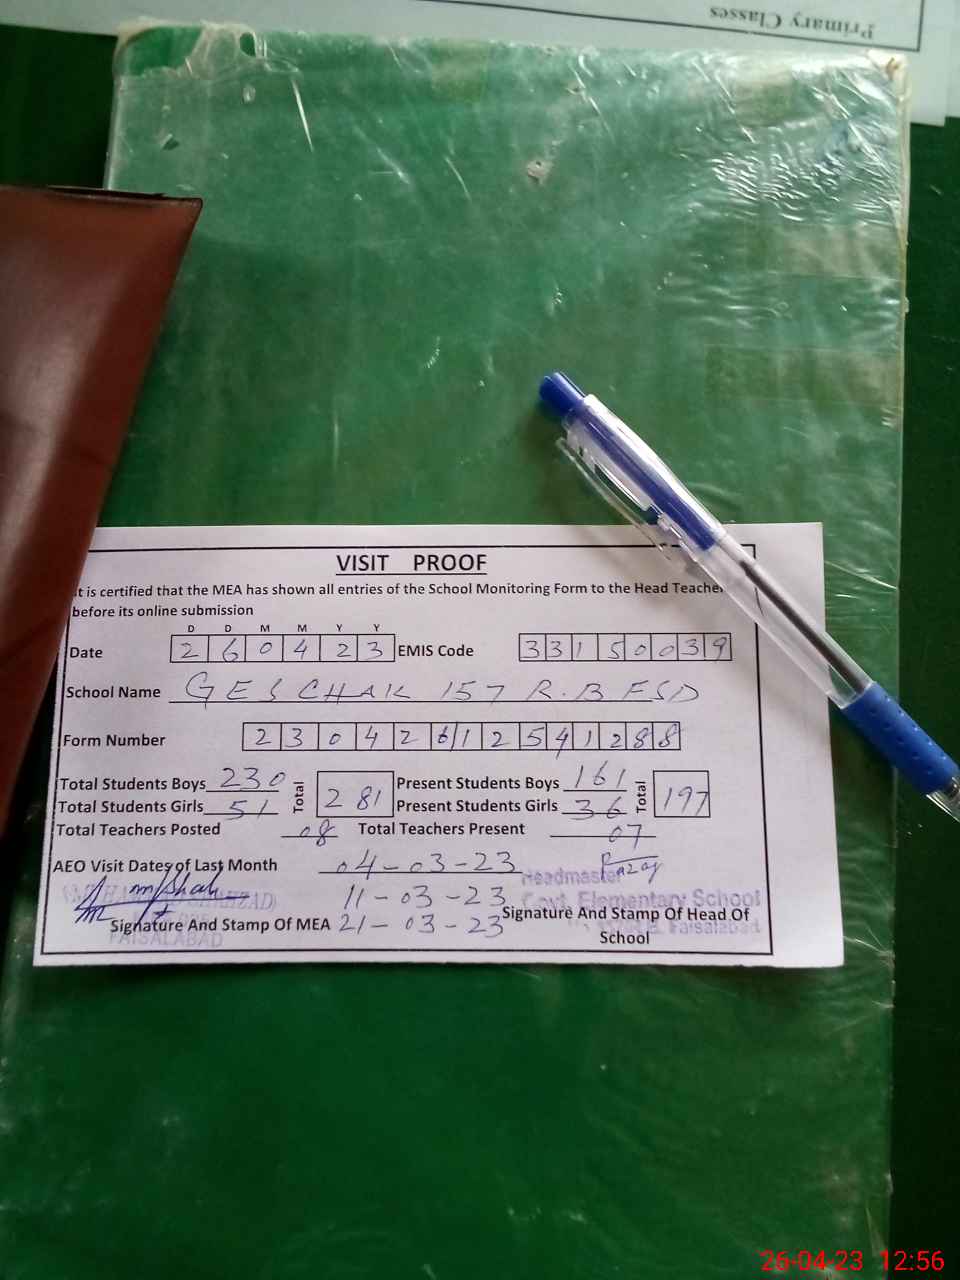 Primary Classes
VISIT PROOF
It is certified that the MEA has shown all entries of the School Monitoring Form to the Head Teacher
before its online submission
D D M M Y Y
Date 2 6 0 4 2 3 EMIS Code 3 3 1 5 0 0 3 9
School Name GES CHAK 157 R.B FSD
Form Number 2 3 0 4 2 6 1 2 5 4 1 2 8 8
Total Students Boys 230 Total 281 Present Students Boys 161 Total 197
Total Students Girls 51 Present Students Girls 36
Total Teachers Posted 08 Total Teachers Present 07
AEO Visit Dates of Last Month 04-03-23
Headmaster
11-03-23
Govt. Elementary School
Signature And Stamp Of MEA 21-03-23 Signature And Stamp Of Head Of
School
Faisalabad
FAISALABAD
26-04-23 12:56